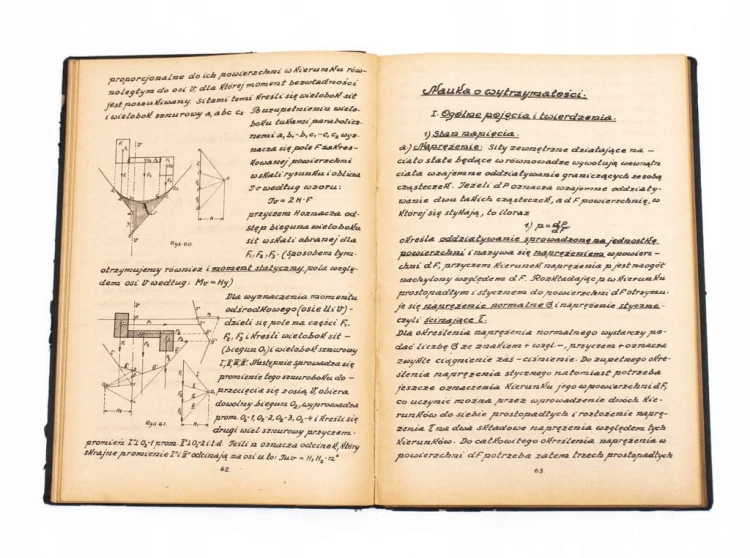 proporcjonalne do ich powierzchni w kierunku rów-
noległym do osi U, dla której moment bezwładności
jest poszukiwany. Siłami temi kreśli się wielobok sił
i wielobok sznurowy a, abc c₁
Po uzupełnieniu wielo-
boku łukami parabolicz-
nemi a, b, -b, c, -c, c₂ wyz-
nacza się pole F zakres-
kowanej powierzchni
w skali rysunku i oblicza
J-v według wzoru:
Jv = 2H·F
przyczem H oznacza od-
stęp bieguna wieloboku
sił w skali obranej dla
F₁, F₂, F₃. (Sposobem tym-
Rys. 60.
otrzymujemy również i moment statyczny pola wzglę-
dem osi U według: Mv = Hy)
Dla wyznaczenia momentu
odśrodkowego (osie U i V) -
dzieli się pole na części F₁,
F₂, F₃ i kreśli wielobok sił -
(biegun O₁) i wielobok sznurowy
I, II, III, IV. Następnie sprowadza się
promienie tego sznuroboku do -
przecięcia się z osią V, obiera
dowolny biegun O₂, wyprowadza
prom. O₂-1, O₂-2, O₂-3, O₂-4 i kreśli się
drugi wiel. sznurowy przyczem -
Rys. 61.
promień I' ⊥ O₂-1 prom. II' ⊥ O₂-2 i t.d. Jeśli n oznacza odcinek, który
skrajne promienie I' i IV' odcinają na osi u to: Juv = H₁ H₂ · n"
62.
Nauka o wytrzymałości.
I. Ogólne pojęcia i twierdzenia.
1) Stan napięcia.
a) Naprężenie: Siły zewnętrzne działające na -
ciało stałe będące w równowadze wywołują wewnątrz
ciała wzajemne oddziaływanie graniczących ze sobą
cząsteczek. Jeżeli dP oznacza wzajemne oddziały-
wanie dwu takich cząsteczek, a dF powierzchnię, w
której się stykają, to iloraz
1) p = dP/dF
określa oddziaływanie sprowadzone na jednostkę
powierzchni i nazywa się naprężeniem w powierz-
chni dF, przyczem kierunek naprężenia p jest naogół
nachylony względem dF. Rozkładając p w kierunku
prostopadłym i stycznem do powierzchni dF otrzymu-
je się naprężenie normalne σ i naprężenie styczne-
czyli ścinające τ.
Dla określenia naprężenia normalnego wystarczy po-
dać liczbę σ ze znakiem + wzgl. -, przyczem + oznacza
zwykle ciągnienie zaś - ciśnienie. Do zupełnego okre-
ślenia naprężenia stycznego natomiast potrzeba
jeszcze oznaczenia kierunku jego w powierzchni dF,
co uczynić można przez wprowadzenie dwóch kie-
runków do siebie prostopadłych i rozłożenie naprę-
żenia τ na dwa składowe naprężenia względem tych
kierunków. Do całkowitego określenia naprężenia w
powierzchni dF potrzeba zatem trzech prostopadłych
63.